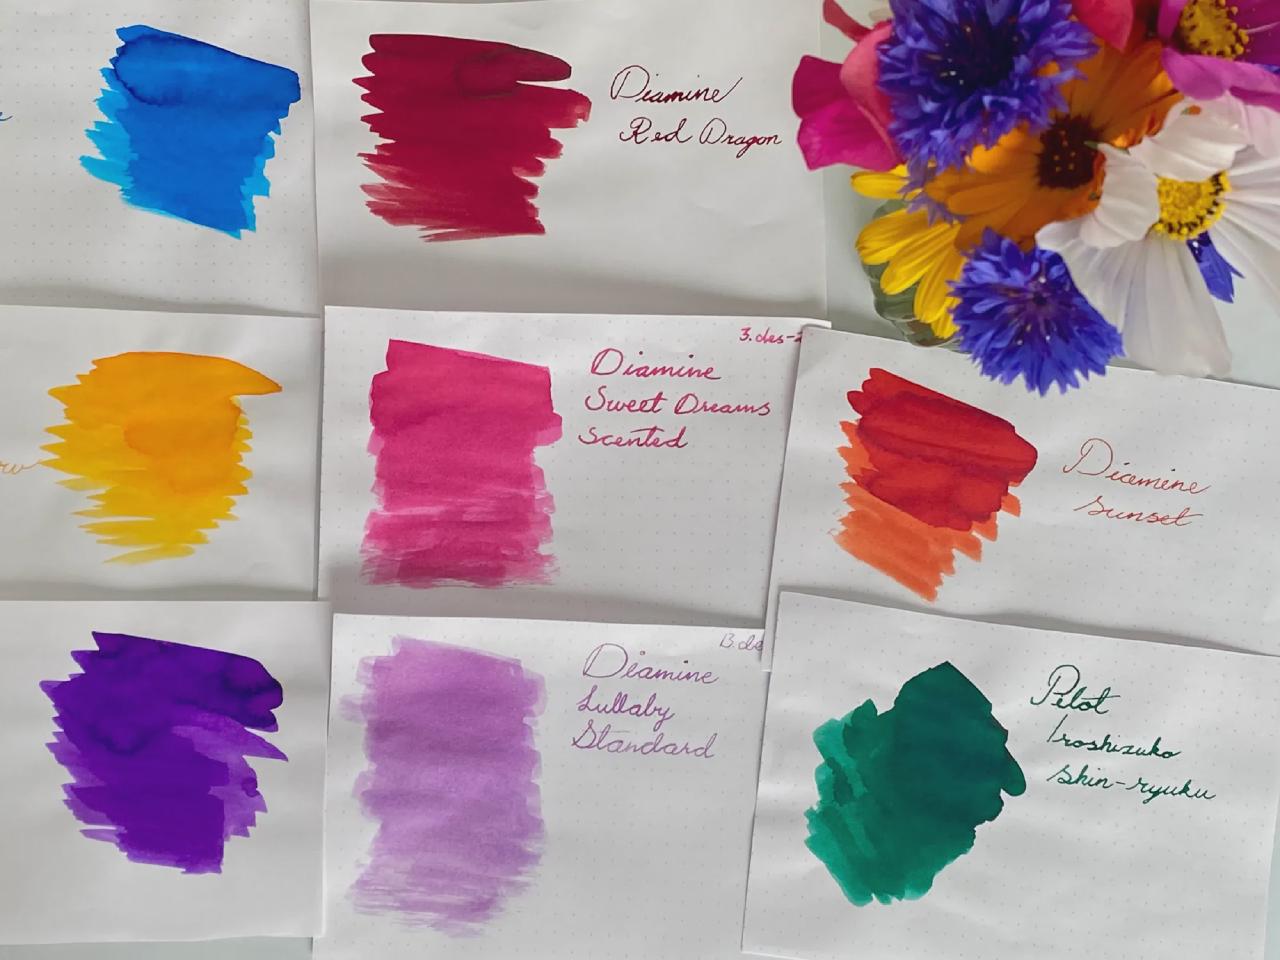 Diamine
Red Dragon
3.des-2
Diamine
Sweet Dreams
Scented
Diamine
Sunset
13.des
Diamine
Lullaby
Standard
Pilot
Iroshizuko
Shin-ryuku